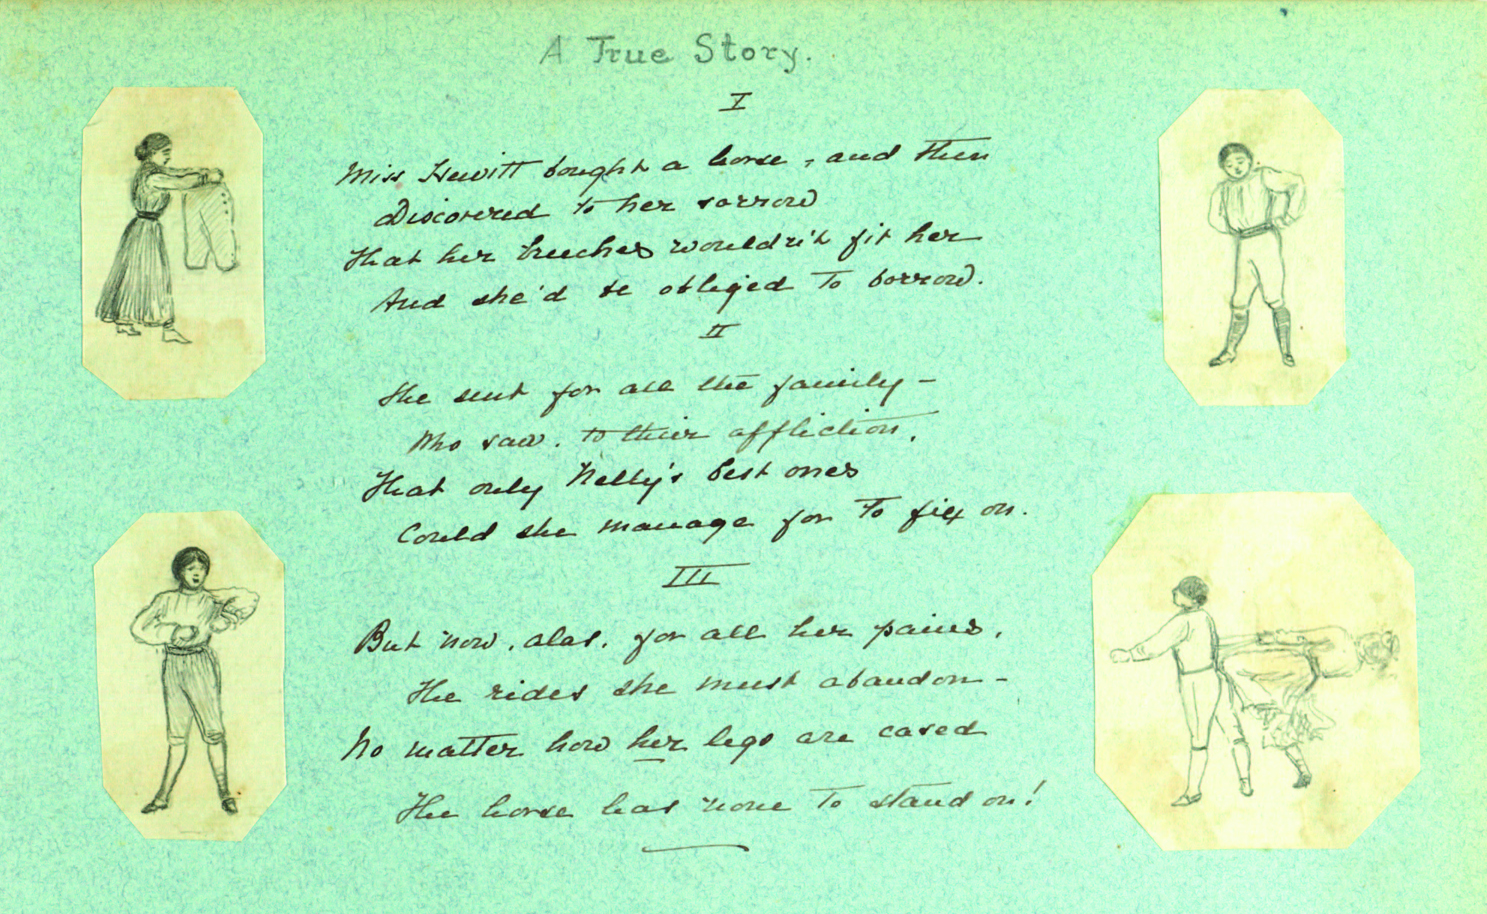 A True Story.
I
Miss Hewitt bought a horse, and then
Discovered to her sorrow
That her breeches wouldn't fit her
And she'd be obliged to borrow.
II
She sent for all the family -
Who saw, to their affliction,
That only Nelly's best ones
Could she manage for to fix on.
III
But now, alas, for all her pains,
The rides she must abandon -
No matter how her legs are cased
The horse has none to stand on!